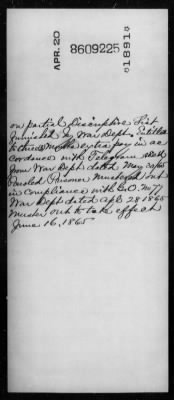 APR. 20
8609225
1891
on partial Descriptive List
furnished by War Dept. Entitled
to three months extra pay in ac
cordance with Telegram
from War Dept dated May 30/65
Paroled Prisoner Mustered out
in compliance with G.O. No 77
War Dept dated Apl 28 1865
Muster out to take effect
June 16, 1865